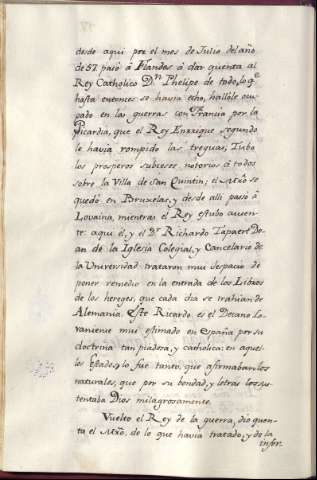 desde aqui por el mes de Julio del año
de 57. pasó à Flandes à dar quenta al
Rey Catholico Dn. Phelipe de todo, lo qe.
hasta entonces se havia echo, hallóle ocu-
pado en las guerras con Francia por la
Picardia, que el Rey Enrrique segundo
le havia rompido las treguas; Tubo
los prosperos subcesos, notorios à todos
sobre la Villa de San Quintin; el Mro. se
quedó en Bruxelas, y desde alli pasó à
Lovaina, mientras el Rey estubo ausen-
te: aqui él, y el Dr. Richardo Tapaert De-
an de la Iglesia Colegial, y Cancelario de
la Universidad trataron mui despacio de
poner remedio en la entrada de los Libros
de los hereges, que cada dia se trahian de
Alemania. Este Ricardo es el Decano Lo-
vaniense mui estimado en España por su
doctrina tan piadosa, y catholica: en aquel-
los Estados, lo fue tanto, que afirmaban los
naturales, que por su bondad, y letras los sus-
tentaba Dios milagrosamente.
Vuelto el Rey de la guerra, dió quen-
ta el Mro. de lo que havia tratado, y de la